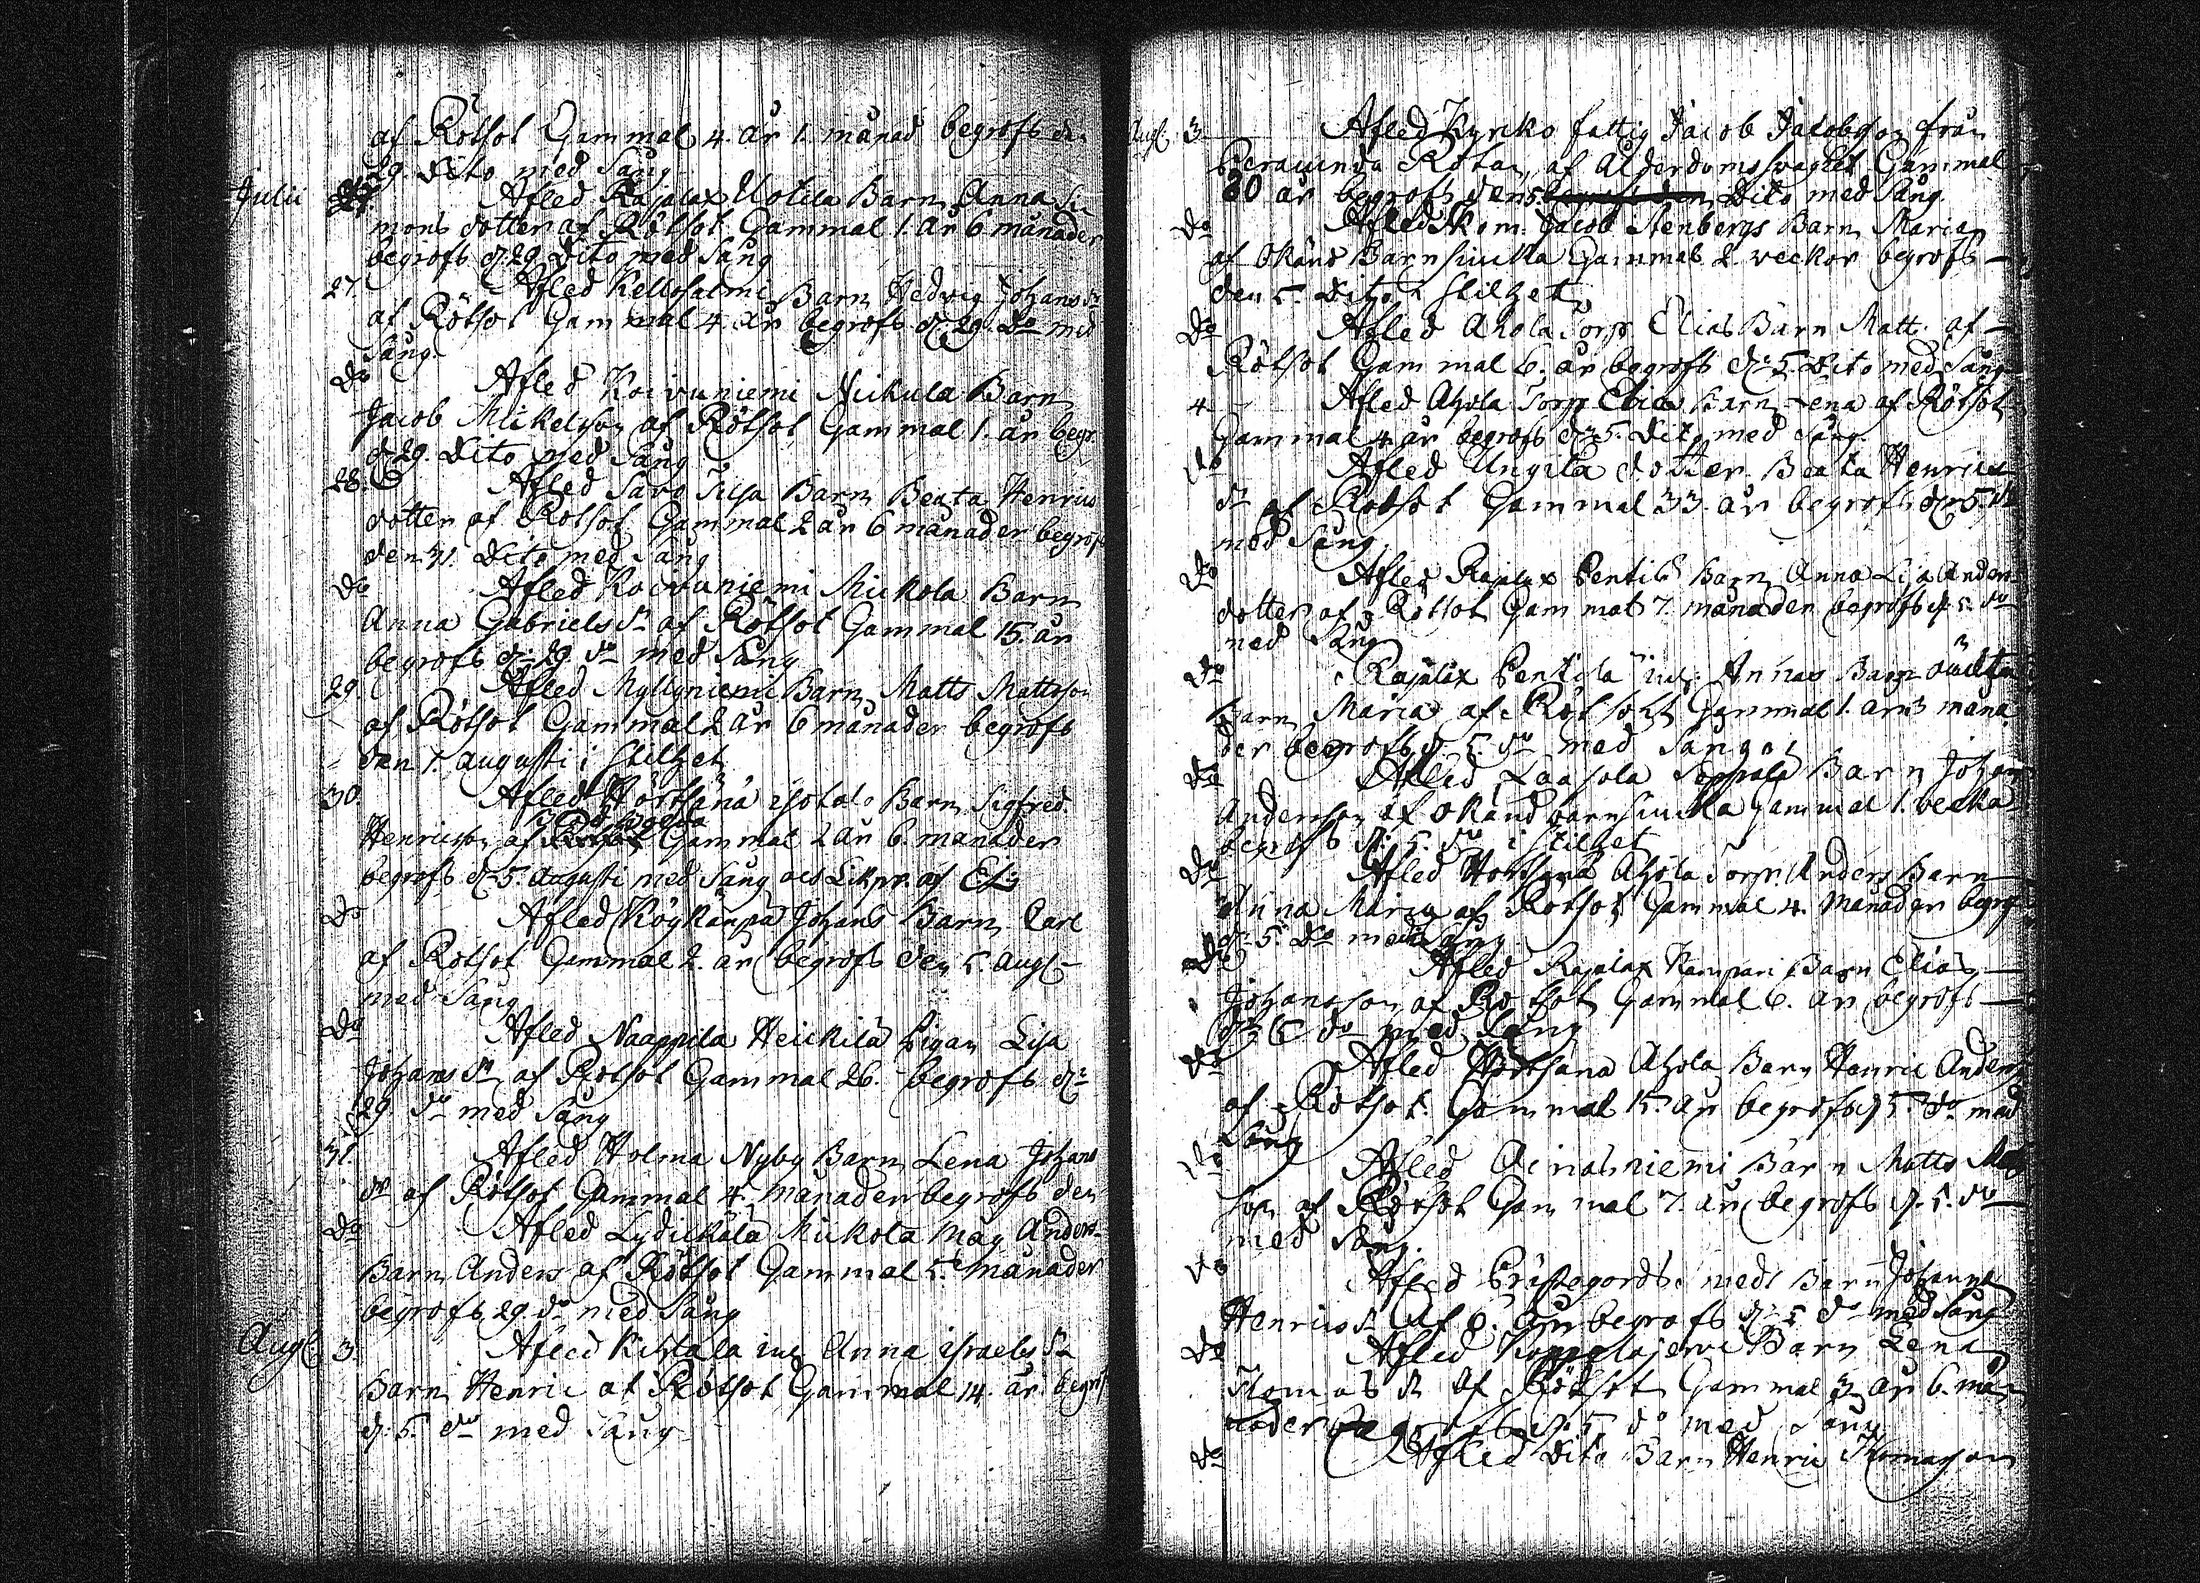 af Rötsot Gammal 4. år 1. månad begrofs d:
29. Dito med Sång
Julii 27. Afled Rajalax Uotila Barn Anna Si-
mons dotter af Rötsot Gammal 1. år 6 månader
begrofs d. 29. Dito med Sång
27. Afled Kellosalmi Barn Hedvig Johans dr
af Rötsot Gammal 4. år begrofs d. 29. Do med
Sång.
Do Afled Koivuniemi Nickula Barn
Jacob Mickelsson af Rötsot Gammal 1. år begr.
d 29. Dito med Sång
28. Afled Savo Barn Beata Henrics
dotter af Rötsot Gammal 2 år 6 månader begrofs
den 31. Dito med Sång
Do Afled Koivuniemi Mickola Barn
Anna Gabriels dr af Rötsot Gammal 15. år
begrofs d. 29. do med Sång
29. Afled Myllyniemi Barn Matts Mattsson
af Rötsot Gammal 2 år 6 månader begrofs
den 1. augusti i stilhet
30. Afled Barn Sigfred
Henricsson af Gammal 2 år 6. månader
begrofs d. 5. Augusti med Sång och Likpr. af
Do Afled Köykänpä Johans Barn Carl
af Rötsot Gammal 2. år begrofs den 5. Aug:
med Sång
Do Afled Naappila Heickilä Pigan Lisa
Johans dr af Rötsot Gammal 26. begrofs d:
29. do med Sång
31. Afled Holma Nyby Barn Lena Johans
dr af Rötsot Gammal 4. månader begrofs den
Do Afled Lydickälä Mickola måg Anders
Barn Anders af Rötsot Gammal 5. månader
begrofs 29. do med Sång
Aug: 3. Afled Kihlala inh Anna Israels dr
Barn Henric af Rötsot Gammal 14. år begrofs
d. 5. do med Sång
Aug: 3. Afled Kyrko fattig Jacob Jacobsson från
Rotan, af Ålderdoms svaghet Gammal
80 år begrofs den 5. Dito med Sång.
Do Afled Skom. Jacob Stenbergs Barn Maria
af Okänd Barnsiucka Gammal 2. veckor begrofs
den 5. Dito i stilhet
Do Afled Ahola Torp Elias Barn Matts af
Rötsot Gammal 6. år begrofs d. 5. Dito med Sång
4 Afled Ahola Torp Elias Barn Lena af Rötsot
Gammal 4. år begrofs d. 5. Dito med Sång.
Do Afled Ungila dotter Beata Henrics
dr af Rötsot Gammal 33. år begrofs d. 5. do
med Sång.
Do Afled Rajalax Pentilä Barn Anna Lisa Anders
dotter af Rötsot Gammal 7. månader begrofs d. 5. do
med Sång
Do Rajalax Pentila inh: Annas Barn oäckta
Barn Maria af Rötsot Gammal 1. år 3 måna
der begrofs d. 5. do med Sång
Do Afled Laasola Seppälä Barn Johan
Andersson af Okänd barnsiucka Gammal 1. vecka
begrofs d. 5. do i stilhet
Do Afled Hörhänä Ahola Torp. Anders Barn
Anna Maria af Rötsot Gammal 4. månader begrofs
d. 5. Do med Sång.
Do Afled Rajalax Kampari Barn Elias
Johansson af Rötsot Gammal 6. år begrofs
d. 5 do med Sång
Do Afled Hörhänä Ahola Barn Henric Anders
af Rötsot. Gammal 15. år begrofs d. 5. do med
Sång
Do Afled Ainalniemi Barn Matts Mats
son af Rötsot Gammal 7. år begrofs d. 5. do
med Sång.
Do Afled Prästegårds smeds Barn Johanna
Henrics d. Af 6. år begrofs d. 5 do med Sång
Do Afled Koppelojerve Barn Lena
Thomas dr af Rötsot Gammal 3 år 6. må-
nader begrofs d. 5 do med Sång
Do Afled Dito Barn Henric Thomasson